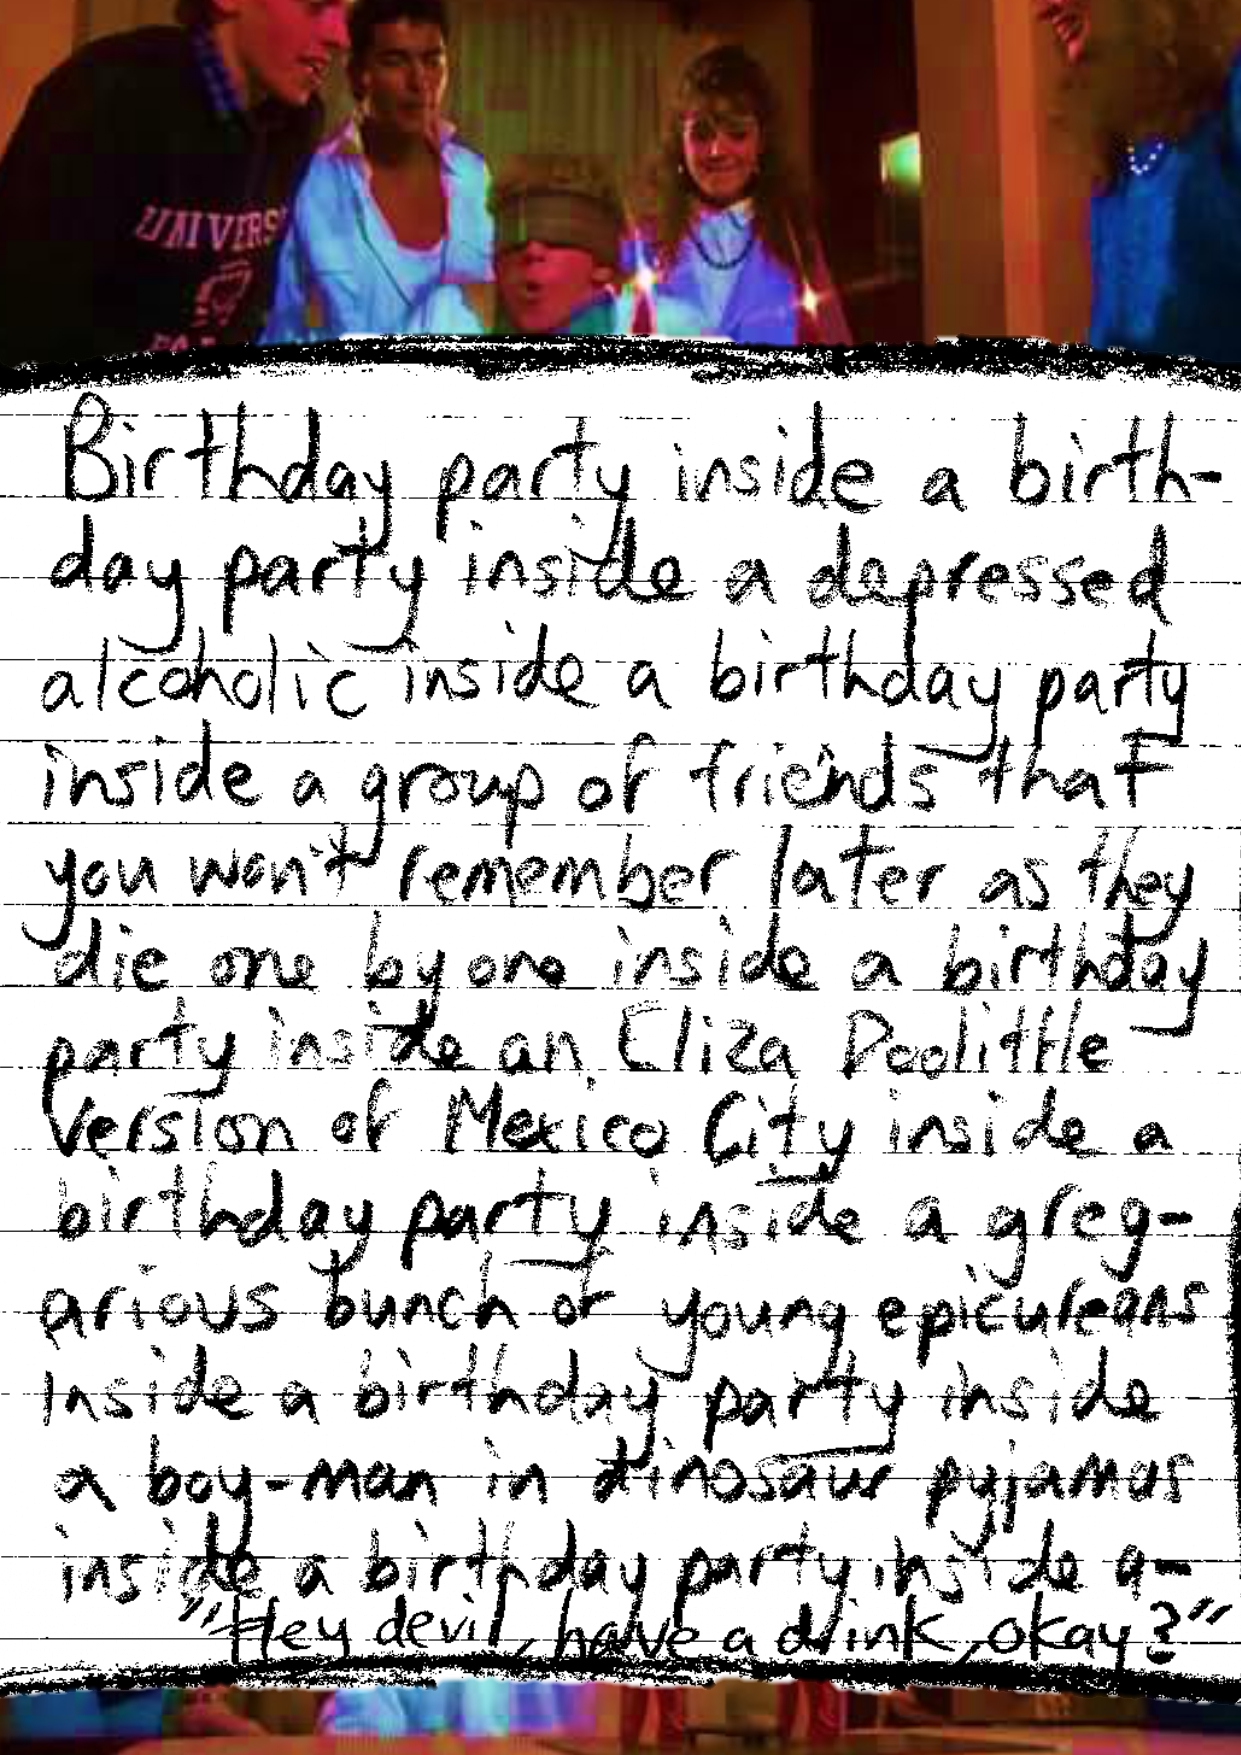 UNIVERS
Birthday party inside a birth-
day party inside a depressed
alcoholic inside a birthday party
inside a group of friends that
you won't remember later as they
die one by one inside a birthday
party inside an Eliza Doolittle
version of Mexico City inside a
birthday party inside a greg-
arious bunch of young epicureans
inside a birthday party inside
a boy-man in dinosaur pyjamas
inside a birthday party inside a-
"Hey devil, have a drink, okay?"